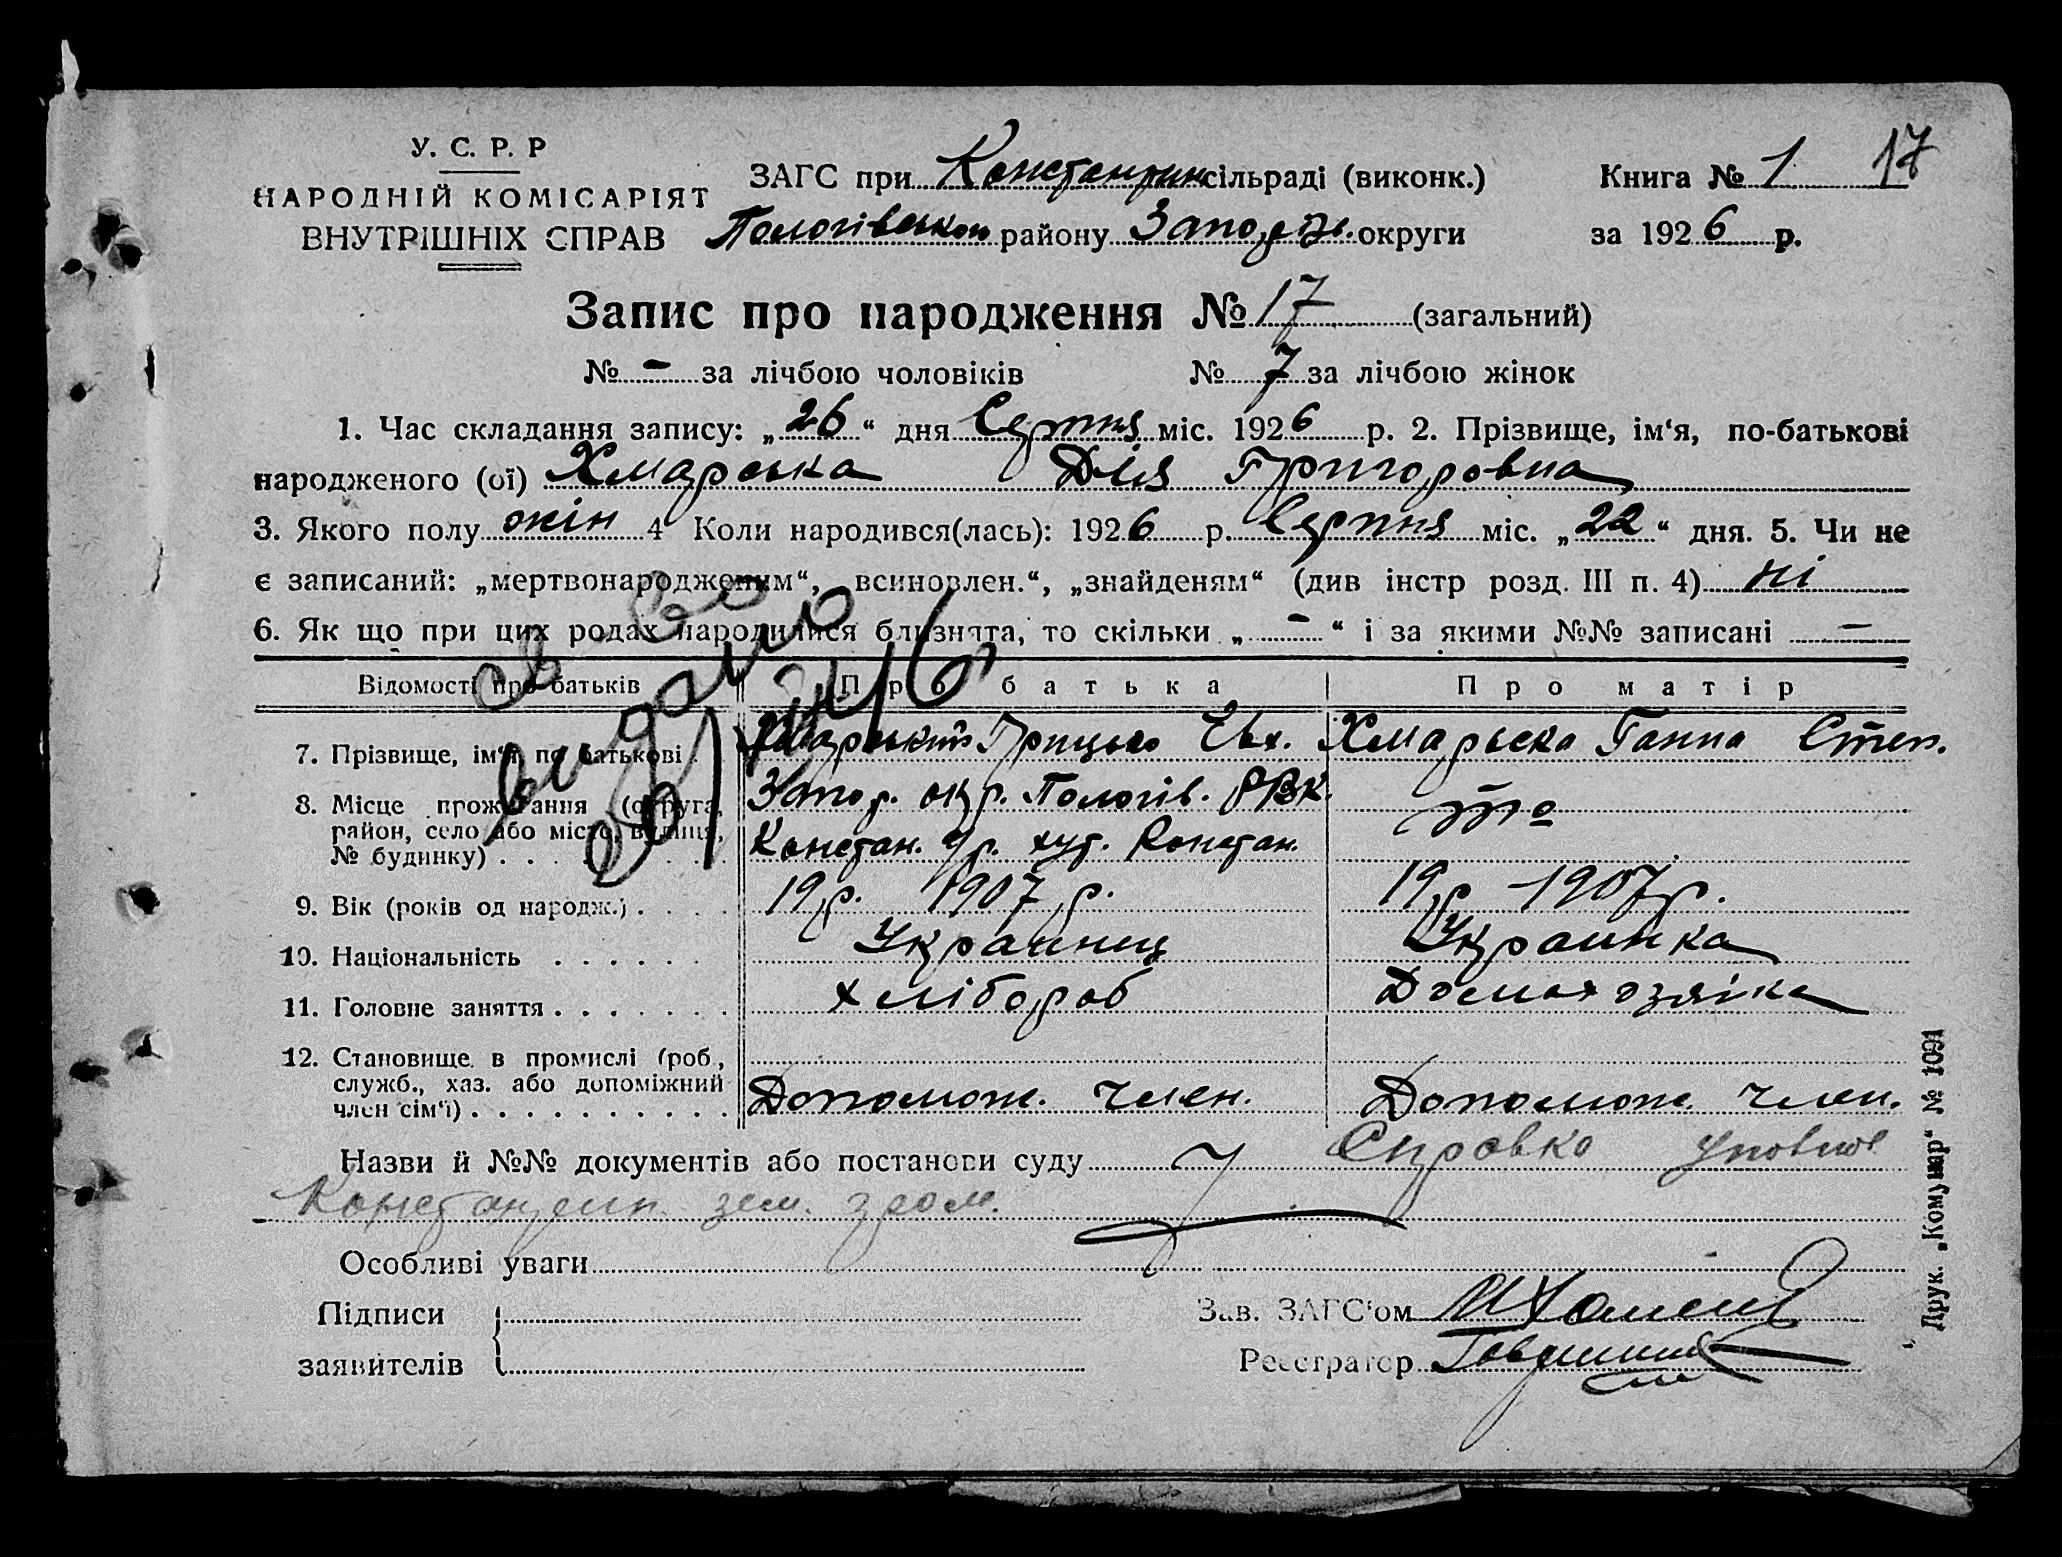 У. С. Р. Р
НАРОДНІЙ КОМІСАРІЯТ
ВНУТРІШНІХ СПРАВ
ЗАГС при Константин сільраді (виконк.)
Книга № 1 17
Пологівського району Запорізь. округи
за 1926 р.
Запис про народження № 17 (загальний)
№ - за лічбою чоловіків № 7 за лічбою жінок
1. Час складання запису: „26“ дня Серпня міс. 1926 р. 2. Прізвище, ім‘я, по-батькові
народженого (ої) Хмарська Діля Григоровна
3. Якого полу жін 4 Коли народився(лась): 1926 р. Серпня міс. „22“ дня. 5. Чи не
є записаний: „мертвонародженим“, всиновлен.“, „знайденям“ (див інстр розд. III п. 4) ні
6. Як що при цих родах народилися близнята, то скільки „ - “ і за якими №№ записані -
св-во
видано
Відомості про батьків Про батька Про матір
7. Прізвище, ім‘я, по батькові . Хмарський Грицько Євх. Хмарьска Ганна Степ.
8. Місце прожитання (округа, Запор. окр. Пологів. РВК. то
район, село або місто, вулиця,
№ будинку) . . . . . . . . Констан. с/р. хут. Констан.
9. Вік (років од народж.) . . . . 19 р. 1907 р. 19 р - 1907 р.
10. Національність . . . . . . Украинец Украинка
11. Головне заняття . . . . . . . хлібороб Домохозяіка
12. Становище в промислі (роб.,
служб., хаз. або допоміжний
член сім‘ї) . . . . . . . . . . . Допомож. член. Допомож. член.
Назви й №№ документів або постанови суду Справка уповнов
Константин. зем. гром.
Особливі уваги
Підписи
заявителів
Зав. ЗАГС‘ом
Реєстратор
Друк. „Комунар“ № 1091